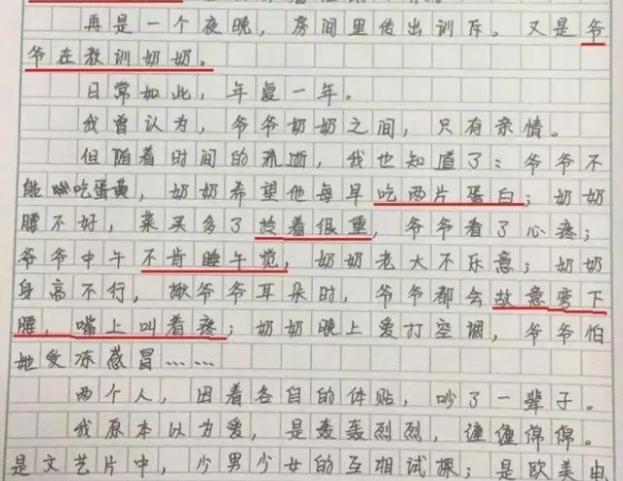 再是一个夜晚，房间里传出训斥。又是爷
爷在教训奶奶。
日常如此，年复一年。
我曾认为，爷爷奶奶之间，只有亲情。
但随着时间的流逝，我也知道了：爷爷不
能吃蛋黄，奶奶希望他每早吃两片蛋白；奶奶
腰不好，菜买多了拎着很重，爷爷看了心疼；
爷爷中午不肯睡午觉，奶奶老大不乐意；奶奶
身高不行，揪爷爷耳朵时，爷爷都会故意弯下
腰，嘴上叫着疼；奶奶晚上爱打空调，爷爷怕
她受冻感冒……
两个人，因着各自的体贴，吵了一辈子。
我原本以为爱，是轰轰烈烈，缠缠绵绵。
是文艺片中，少男少女的互相试探；是欧美电